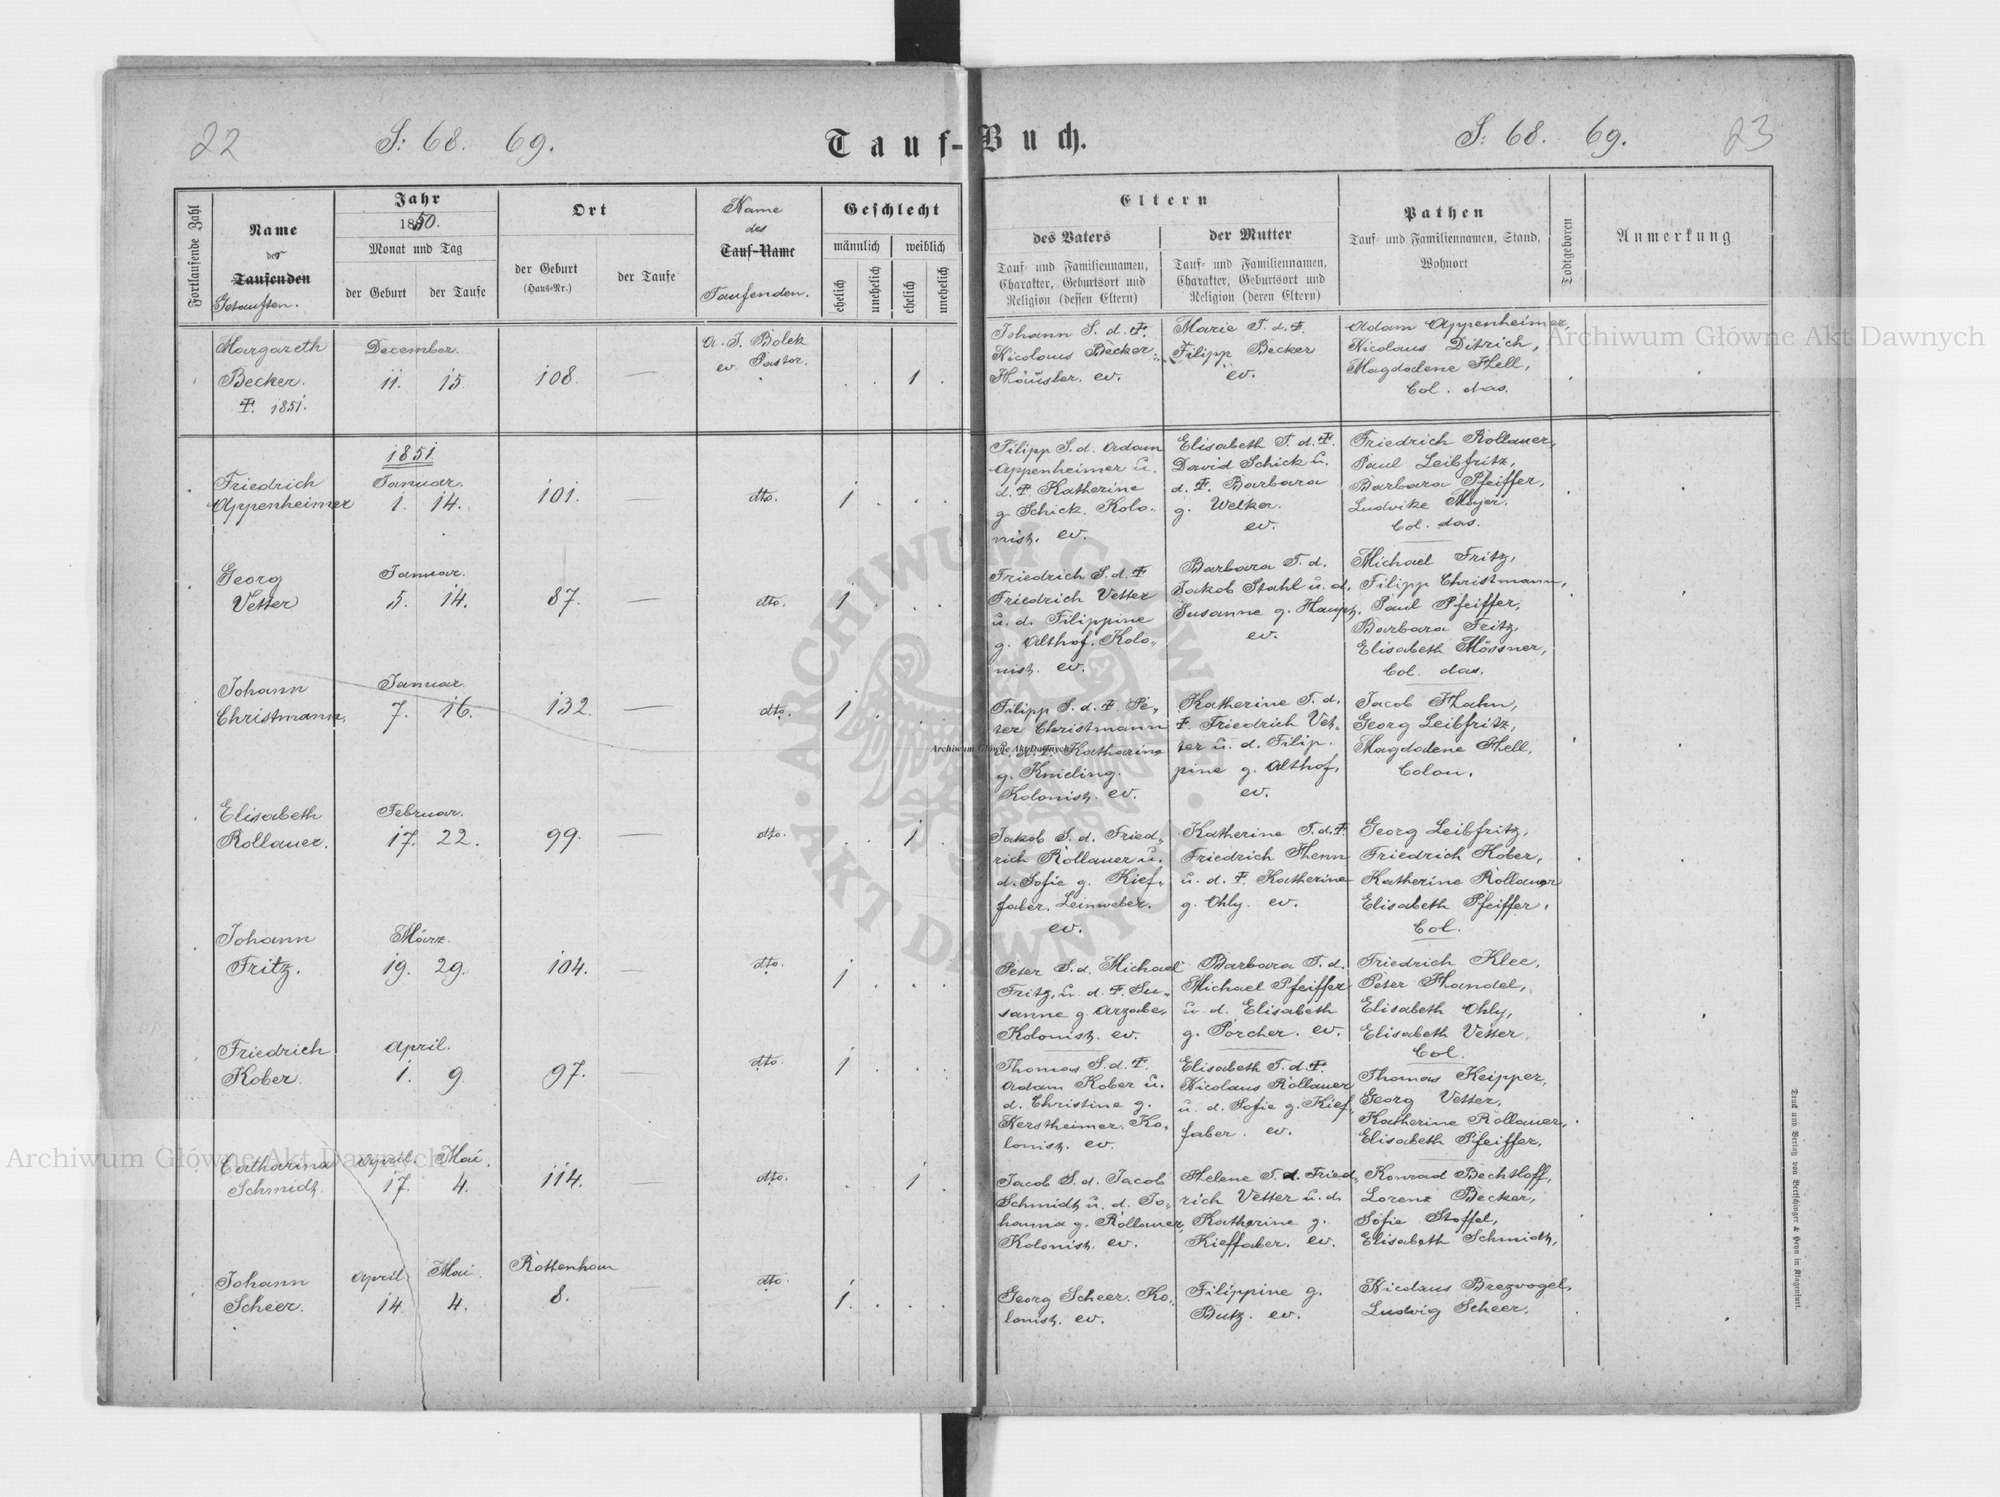 22
S: 68. 69.
Tauf-Buch.
S: 68. 69.
23
Fortlaufende Zahl
Name
des
Taufenden
Getauften.
Jahr
1850.
Monat und Tag
der Geburt
der Taufe
Ort
der Geburt
(Haus-Nr.)
der Taufe
Name
des
Tauf-Name
Taufenden.
Geschlecht
männlich
weiblich
ehelich
unehelich
ehelich
unehelich
Eltern
des Vaters
Tauf- und Familiennamen,
Charakter, Geburtsort und
Religion (dessen Eltern)
der Mutter
Tauf- und Familiennamen,
Charakter, Geburtsort und
Religion (deren Eltern)
Pathen
Tauf- und Familiennamen, Stand,
Wohnort
Todtgeboren
Anmerkung
Margareth
Becker.
†. 1851.
December.
11. 15.
108. —
A. J. Bolek
ev. Pastor.
1
Johann S. d. †.
Nicolaus Becker.
Häusler. ev.
Marie T. d. †.
Filipp Becker
ev.
Adam Appenheimer,
Nicolaus Ditrich,
Magdalene Hell,
Col. das.
1851.
Friedrich
Appenheimer
Januar.
1. 14.
101. —
dto.
1
Filipp S. d. Adam
Appenheimer u.
d. †. Katherine
g. Schick. Kolo-
nist. ev.
Elisabeth T. d. †.
David Schick u.
d. †. Barbara
g. Welker.
ev.
Friedrich Rollauer,
Paul Leibfritz,
Barbara Pfeiffer,
Ludwike Mejer.
Col. das.
Georg
Vetter
Januar.
5. 14.
87. —
dto.
1
Friedrich S. d. †
Friedrich Vetter
u. d. Filippine
g. Althof. Kolo-
nist. ev.
Barbara T. d.
Jakob Stahl u. d.
Susanne g. Haupt.
ev.
Michael Fritz,
Filipp Christmann,
Paul Pfeiffer,
Barbara Fritz,
Elisabeth Mössner,
Col. das.
Johann
Christmann.
Januar.
7. 16.
132. —
dto.
1
Filipp S. d. †. Pe-
ter Christmann
u. d. †. Katharine
g. Knieling.
Kolonist. ev.
Katherine T. d.
†. Friedrich Vet-
ter u. d. Filip-
pine g. Althof,
ev.
Jacob Hahn,
Georg Leibfritz,
Magdalene Hell,
Colon.
Elisabeth
Rollauer.
Februar.
17. 22.
99. —
dto.
1
Jakob S. d. Fried-
rich Rollauer u.
d. Sofie g. Kief-
faber. Leinweber.
ev.
Katherine T. d. †
Friedrich Henn
u. d. †. Katherine
g. Ohly. ev.
Georg Leibfritz,
Friedrich Kober,
Katherine Rollauer
Elisabeth Pfeiffer,
Col.
Johann
Fritz.
März.
19. 29.
104. —
dto.
1
Peter S. d. Michael
Fritz, u. d. †. Su-
sanne g. Arzabe,
Kolonist. ev.
Barbara T. d.
Michael Pfeiffer
u. d. Elisabeth
g. Porcher. ev.
Friedrich Klee,
Peter Handel,
Elisabeth Ohly,
Elisabeth Vetter,
Col.
Friedrich
Kober.
April.
1. 9.
97. —
dto.
1
Thomas S. d. †.
Adam Kober u.
d. Christine g.
Kerstheimer. Ko-
lonist. ev.
Elisabeth T. d. †.
Nicolaus Rollauer
u. d. Sofie g. Kief-
faber. ev.
Thomas Keipper,
Georg Vetter,
Katherine Rollauer,
Elisabeth Pfeiffer.
Catharina
Schmidt.
April. Mai.
17. 4.
114. —
dto.
1
Jacob S. d. Jacob
Schmidt u. d. Jo-
hanna g. Rollauer,
Kolonist. ev.
Helene T. d. Fried-
rich Vetter u. d.
Katherine g.
Kieffaber. ev.
Konrad Bechtloff,
Lorenz Becker,
Sofie Stoffel,
Elisabeth Schmidt,
Johann
Scheer.
April Mai.
14. 4.
Rottenhan
8. —
dto.
1.
Georg Scheer. Ko-
lonist. ev.
Filippine g.
Butz. ev.
Nicolaus Brezvogel,
Ludwig Scheer.
Druck und Verlag von Bertschinger & Heyn in Klagenfurt.
Archiwum Główne Akt Dawnych
Archiwum Główne Akt Dawnych
Archiwum Główne Akt Dawnych
ARCHIWUM GŁÓWNE AKT DAWNYCH